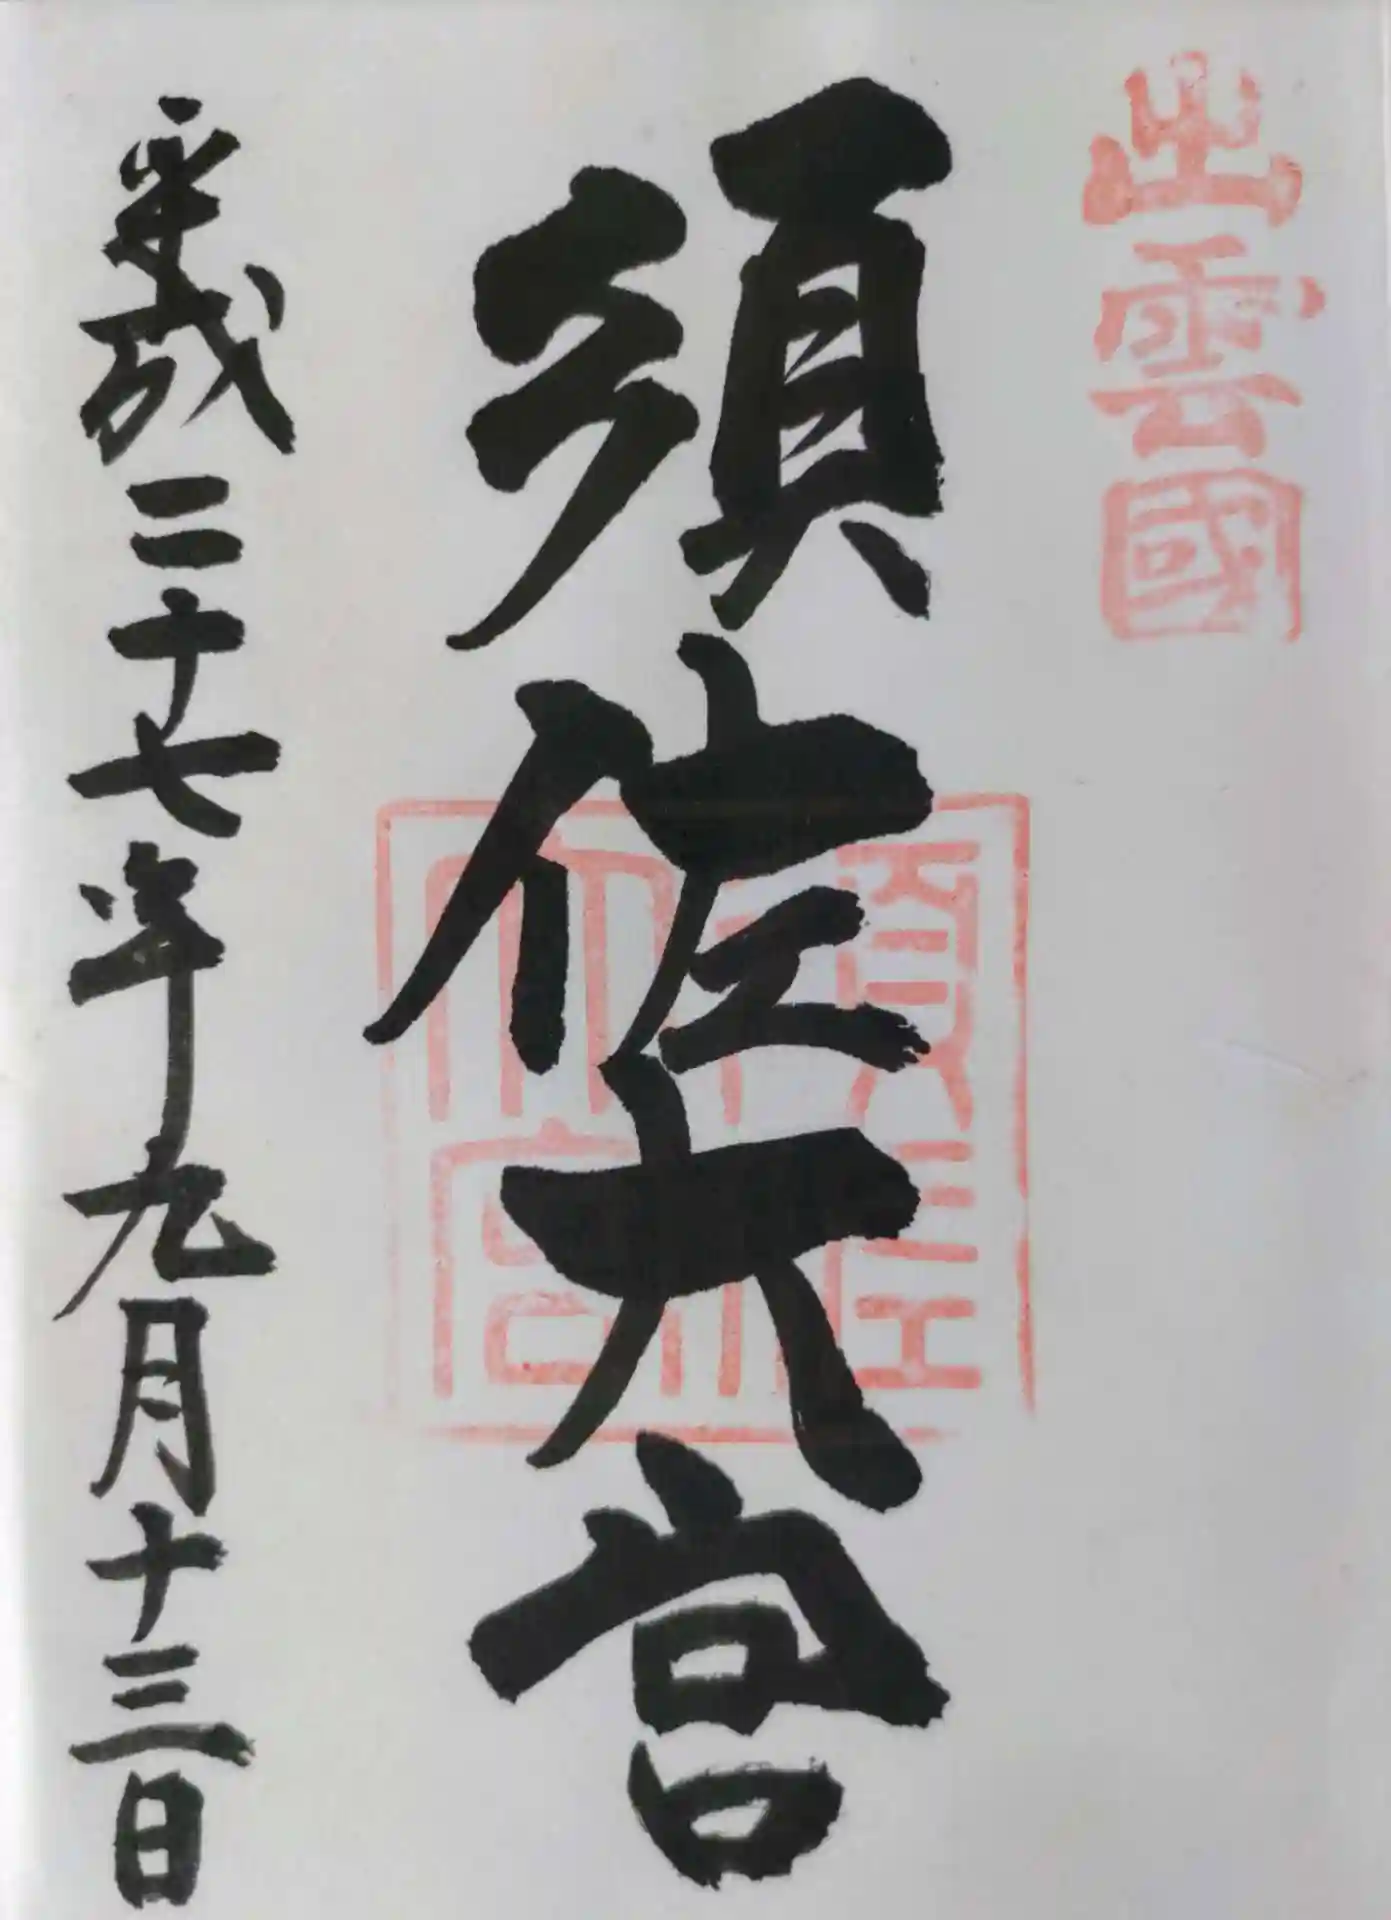 出雲國
須佐大宮
須佐大宮
平成二十七年九月十三日